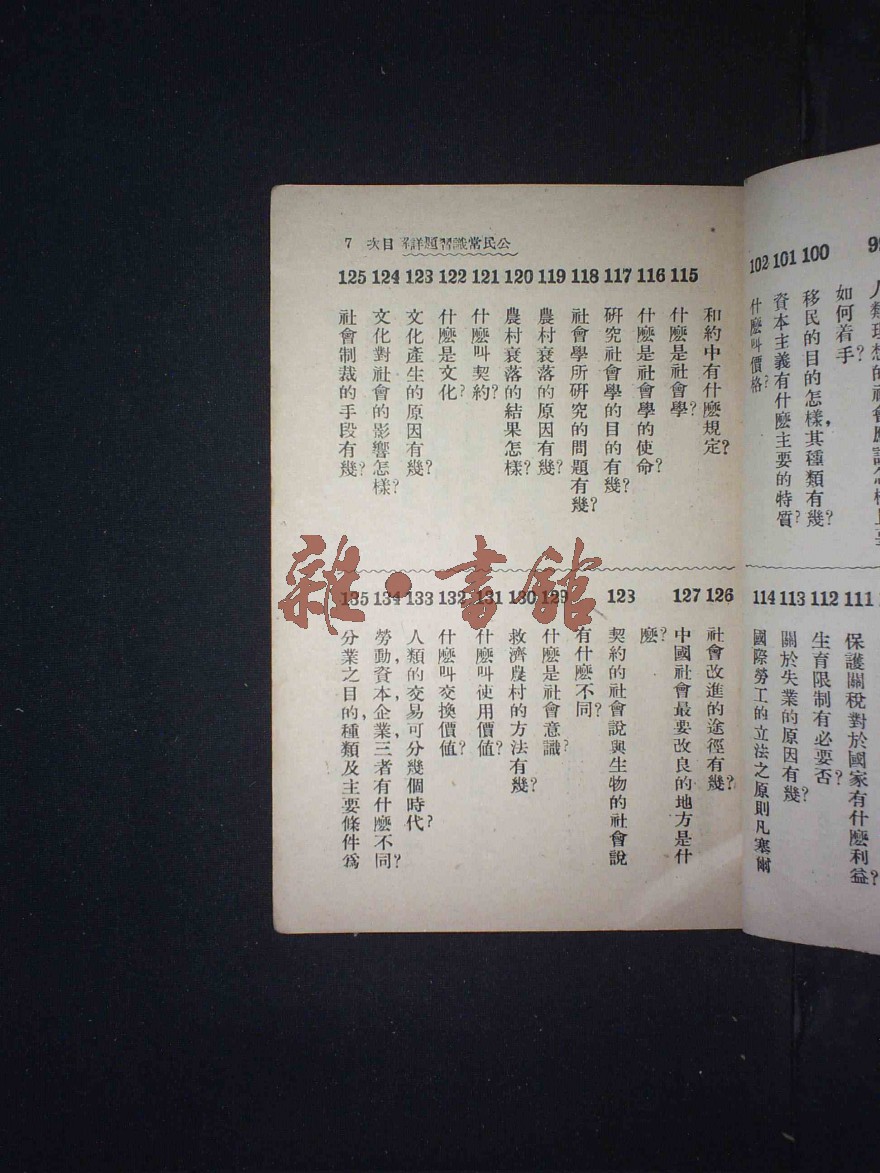 如何着手?
100 移民的目的怎樣,其種類有幾?
101 資本主義有什麼主要的特質?
102 什麼叫價格?
111 保護關稅對於國家有什麼利益?
112 生育限制有必要否?
113 關於失業的原因有幾?
114 國際勞工的立法之原則凡塞爾
公民常識習題詳解 目次 7
和約中有什麼規定?
115 什麼是社會學?
116 什麼是社會學的使命?
117 研究社會學的目的有幾?
118 社會學所研究的問題有幾?
119 農村衰落的原因有幾?
120 農村衰落的結果怎樣?
121 什麼叫契約?
122 什麼是文化?
123 文化產生的原因有幾?
124 文化對社會的影響怎樣?
125 社會制裁的手段有幾?
126 社會改進的途徑有幾?
127 中國社會最要改良的地方是什
麼?
128 契約的社會說與生物的社會說
有什麼不同?
129 什麼是社會意識?
130 救濟農村的方法有幾?
131 什麼叫使用價值?
132 什麼叫交換價值?
133 人類的交易可分幾個時代?
134 勞動,資本,企業,三者有什麼不同?
135 分業之目的,種類及主要條件爲
雜·書館